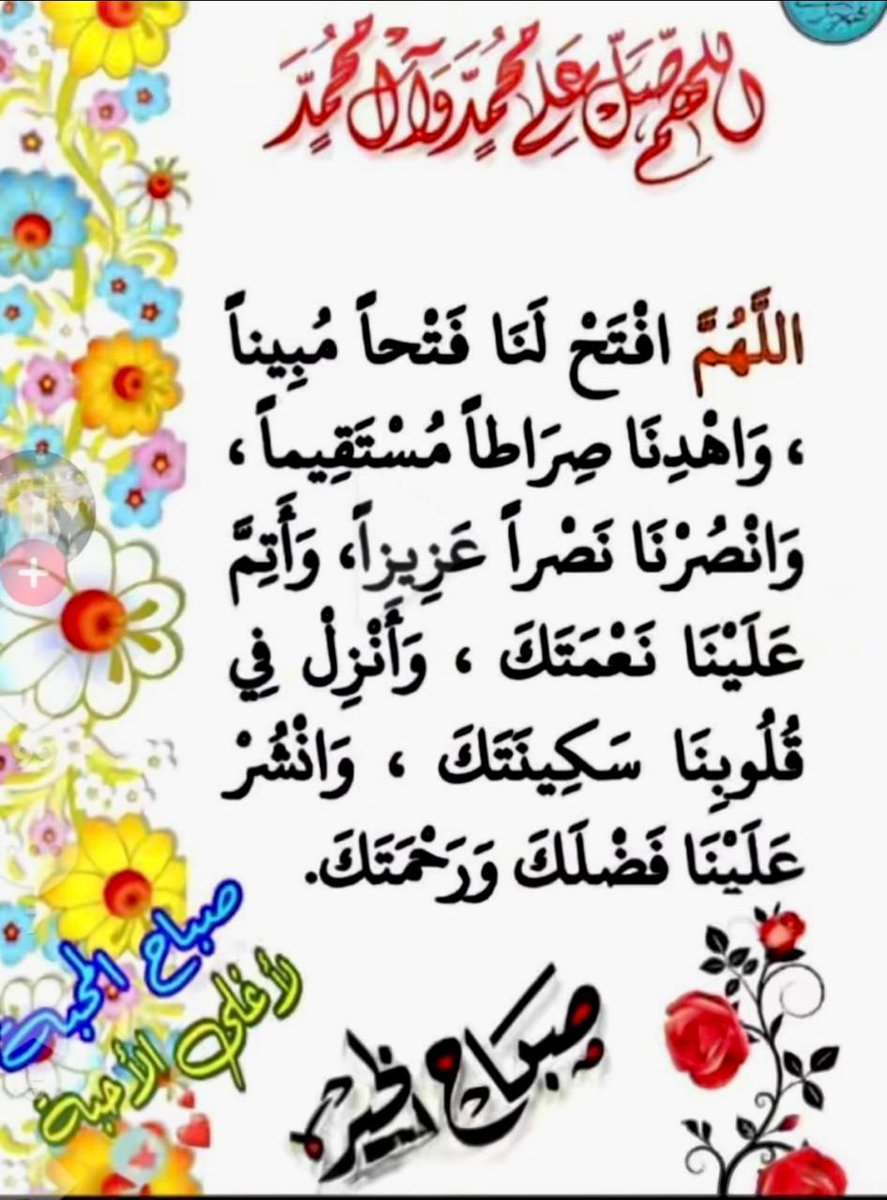 اللهم صَلِّ عَلى مُحَمَّدٍ وَآلِ مُحَمَّدٍ
اللَّهُمَّ افْتَحْ لَنَا فَتْحاً مُبِيناً
، وَاهْدِنَا صِرَاطاً مُسْتَقِيماً ،
وَانْصُرْنَا نَصْراً عَزِيزاً، وَأَتِمَّ
عَلَيْنَا نَعْمَتَكَ ، وَأَنْزِلْ فِي
قُلُوبِنَا سَكِينَتَكَ ، وَانْشُرْ
عَلَيْنَا فَضْلَكَ وَرَحْمَتَكَ.
صباح المحبة
لأغلى الأحبة
صباح الخير